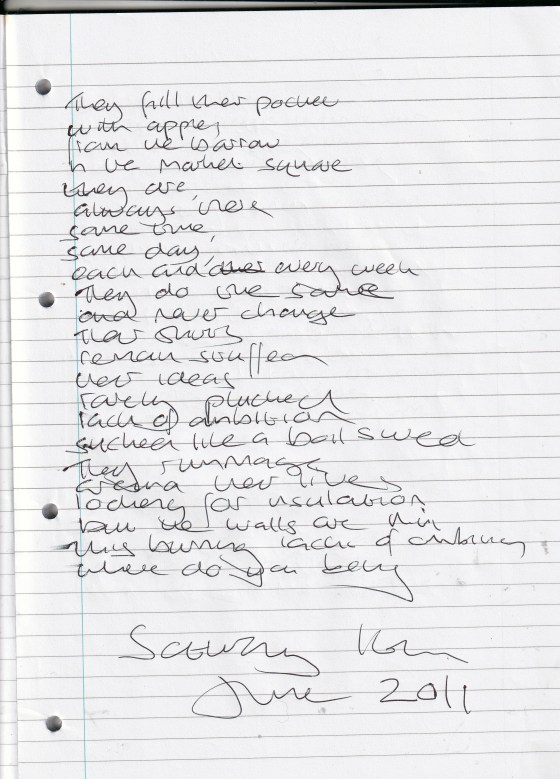 They fill their pocket
with apples
from the barrow
in the market square
they are
always there
same time
same day,
each and every week
They do the same
and never change
their
remain stuffed
their ideas
rarely plucked
lack of ambition
sucked like a boil sweet
They rummage
around their lives
looking for insulation
but the walls are thin
this burning lack of
where do you
June 2011